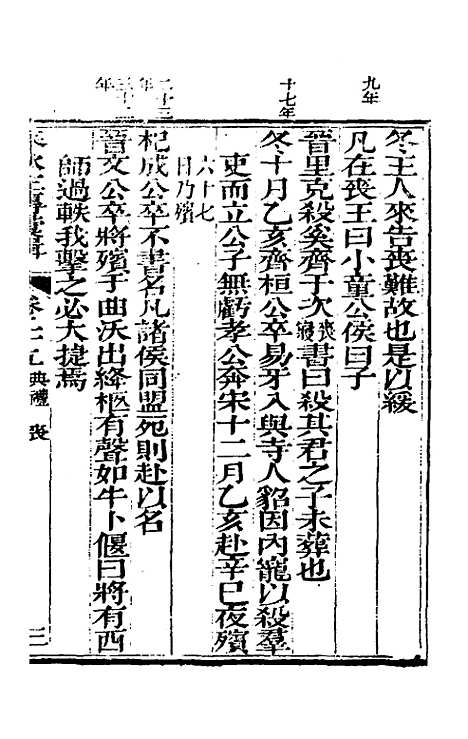 冬王人來告喪難故也是以緩
九年
凡在喪王曰小童公侯曰子
晉里克殺奚齊于次喪寢書曰殺其君之子未葬也
十七年
冬十月乙亥齊桓公卒易牙入與寺人貂因內寵以殺羣
吏而立公子無虧孝公奔宋十二月乙亥赴辛巳夜殯
六十七
日乃殯
二十三
年
杞成公卒不書名凡諸侯同盟死則赴以名
三十二
年
晉文公卒將殯于曲沃出絳柩有聲如牛卜偃曰將有西
師過軼我擊之必大捷焉
典禮 喪
三